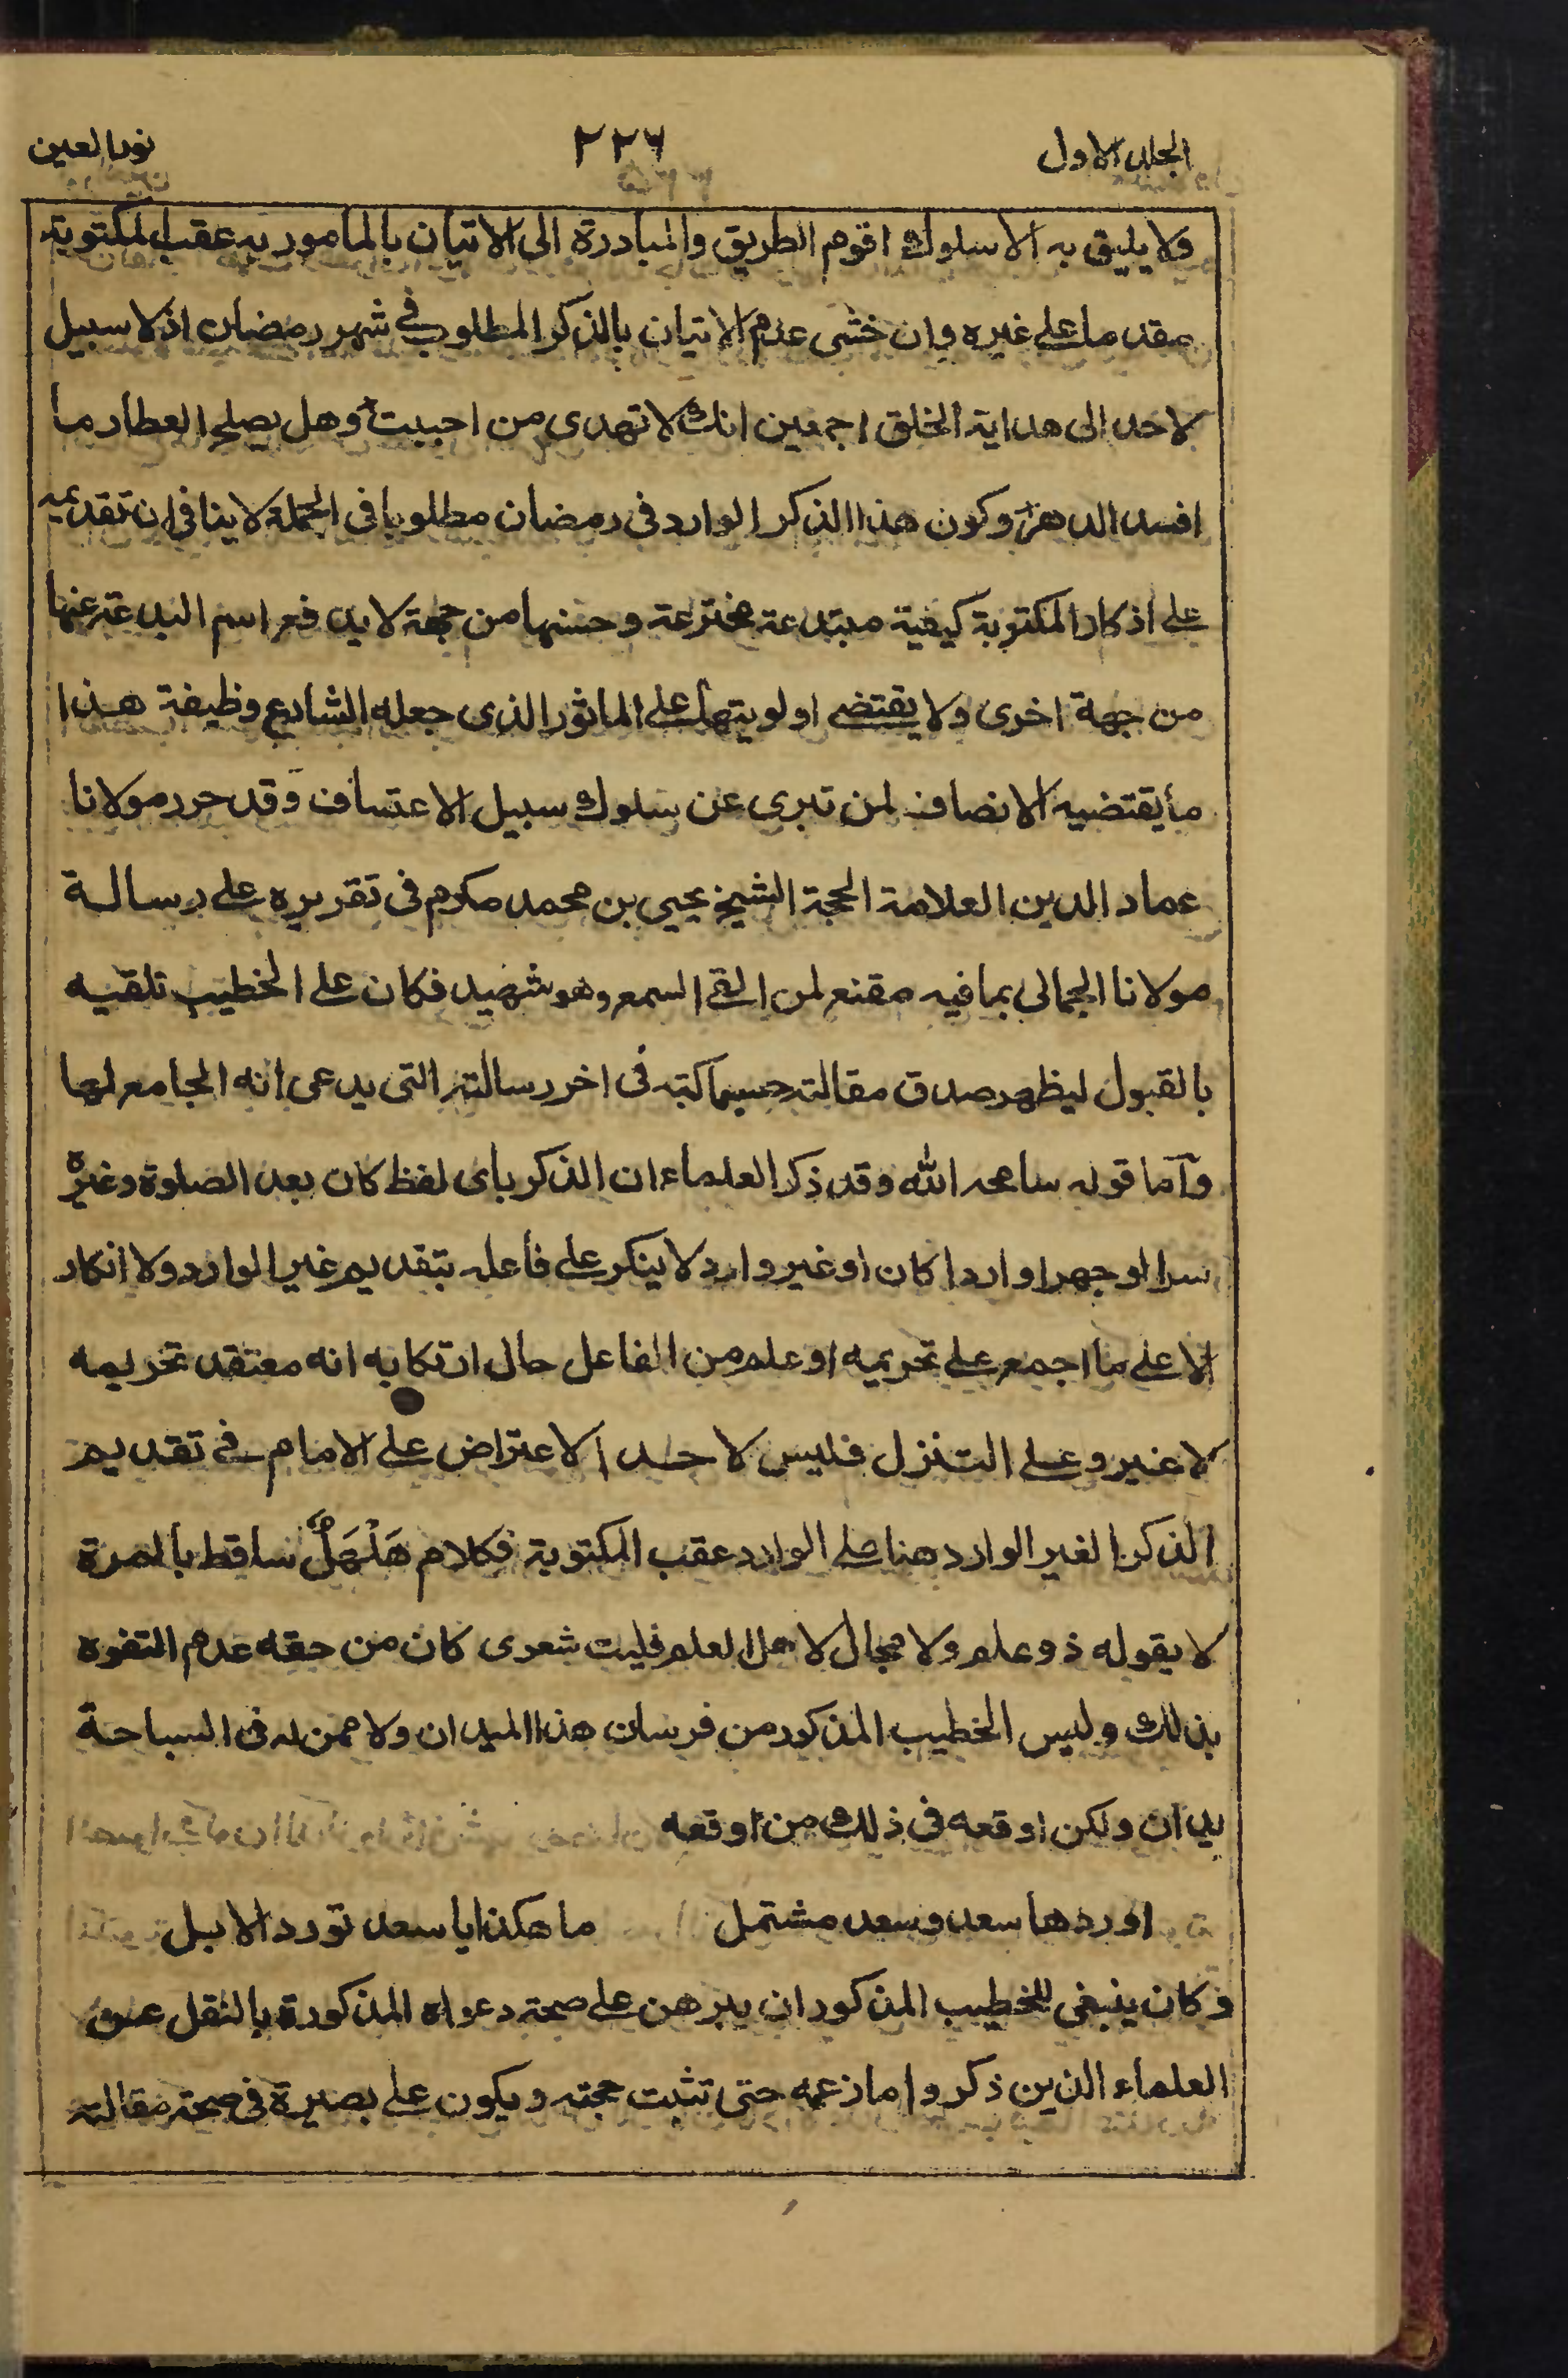 الجلد الاول
٢٢٦
نور العين
ولا يليق به الا سلوك اقوم الطريق والمبادرة الى الاتيان بالمامور به عقب المكتوبة
مقدما على غيره وان خشى عدم الاتيان بالذكر المطلوب فى شهر رمضان اذ لا سبيل
لاحد الى هداية الخلق اجمعين انك لا تهدى من احببت وهل يصلح العطار ما
افسد الدهر وكون هذا الذكر الوارد فى رمضان مطلوبا فى الجملة لا ينافى ان تقديمه
على اذكار المكتوبة كيفية مبتدعة مخترعة وحسنها من جهة لا يدفع اسم البدعة عنها
من جهة اخرى ولا يقتضى اولويتها على الماثور الذى جعله الشارع وظيفة هذا
ما يقتضيه الانصاف لمن تبرى عن سلوك سبيل الاعتساف وقد حرر مولانا
عماد الدين العلامة الحجة الشيخ يحيى بن محمد مكرم فى تقريره على رسالة
مولانا الجمالى بما فيه مقنع لمن القى السمع وهو شهيد فكان على الخطيب تلقيه
بالقبول ليظهر صدق مقالته حسبما كتبه فى اخر رسالته التى يدعى انه الجامع لها
وآما قوله سامحه الله وقد ذكر العلماء ان الذكر باى لفظ كان بعد الصلوة وغيره
سرا او جهرا واردا كان او غير وارد لا ينكر على فاعله بتقديم غير الوارد ولا انكار
الا على ما اجمع على تحريمه او علم من الفاعل حال ارتكابه انه معتقد تحريمه
لا غير وعلى التنزل فليس لاحد الاعتراض على الامام فى تقديم
الذكر الغير الوارد هنا على الوارد عقب المكتوبة فكلام هَلْهَلٌ ساقط بالمرة
لا يقوله ذو علم ولا مجال لاهل العلم فليت شعرى كان من حقه عدم التفوه
بذلك وليس الخطيب المذكور من فرسان هذا الميدان ولا ممن له فى السباحة
يدان ولكن اوقعه فى ذلك من اوقعه
اوردها سعد وسعد مشتمل ما هكذا يا سعد تورد الابل
وكان ينبغى للخطيب المذكور ان يبرهن على صحة دعواه المذكورة بالنقل عن
العلماء الذين ذكروا ما زعمه حتى تثبت حجته ويكون على بصيرة فى صحة مقالته